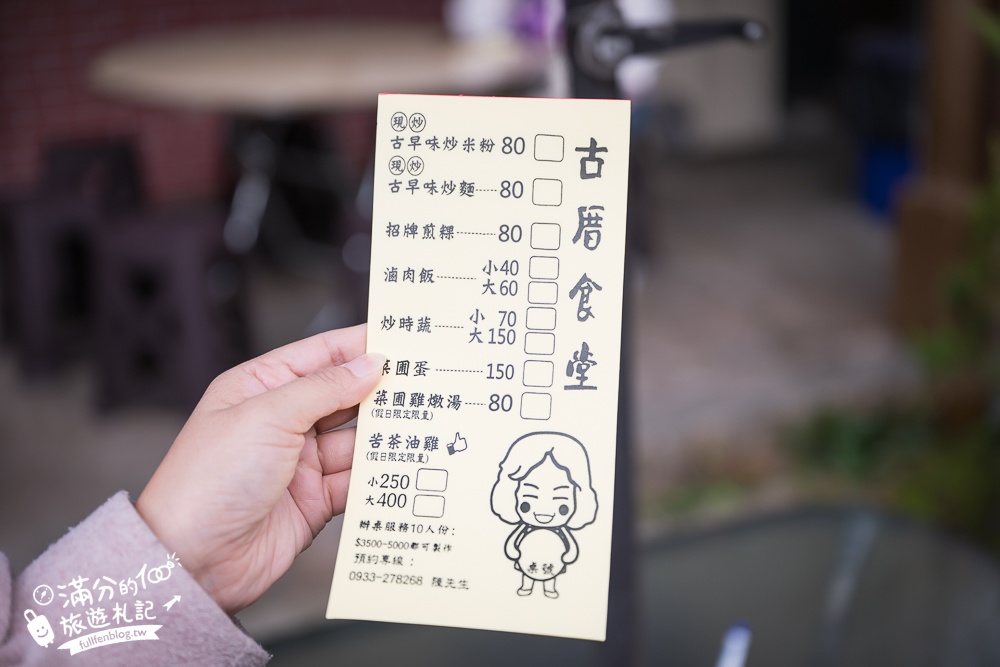 古厝食堂
現炒
古早味炒米粉 80
現炒
古早味炒麵------80
招牌煎粿--------80
滷肉飯--------小40
大60
炒時蔬------小 70
大150
菜圃蛋----------150
菜圃雞燉湯-----80
(假日限定限量)
苦茶油雞
(假日限定限量)
小250
大400
辦桌服務10人份:
$3500-5000都可製作
預約專線:
0933-278268 陳先生
桌號
滿分的100
旅遊札記
fullfenblog.tw